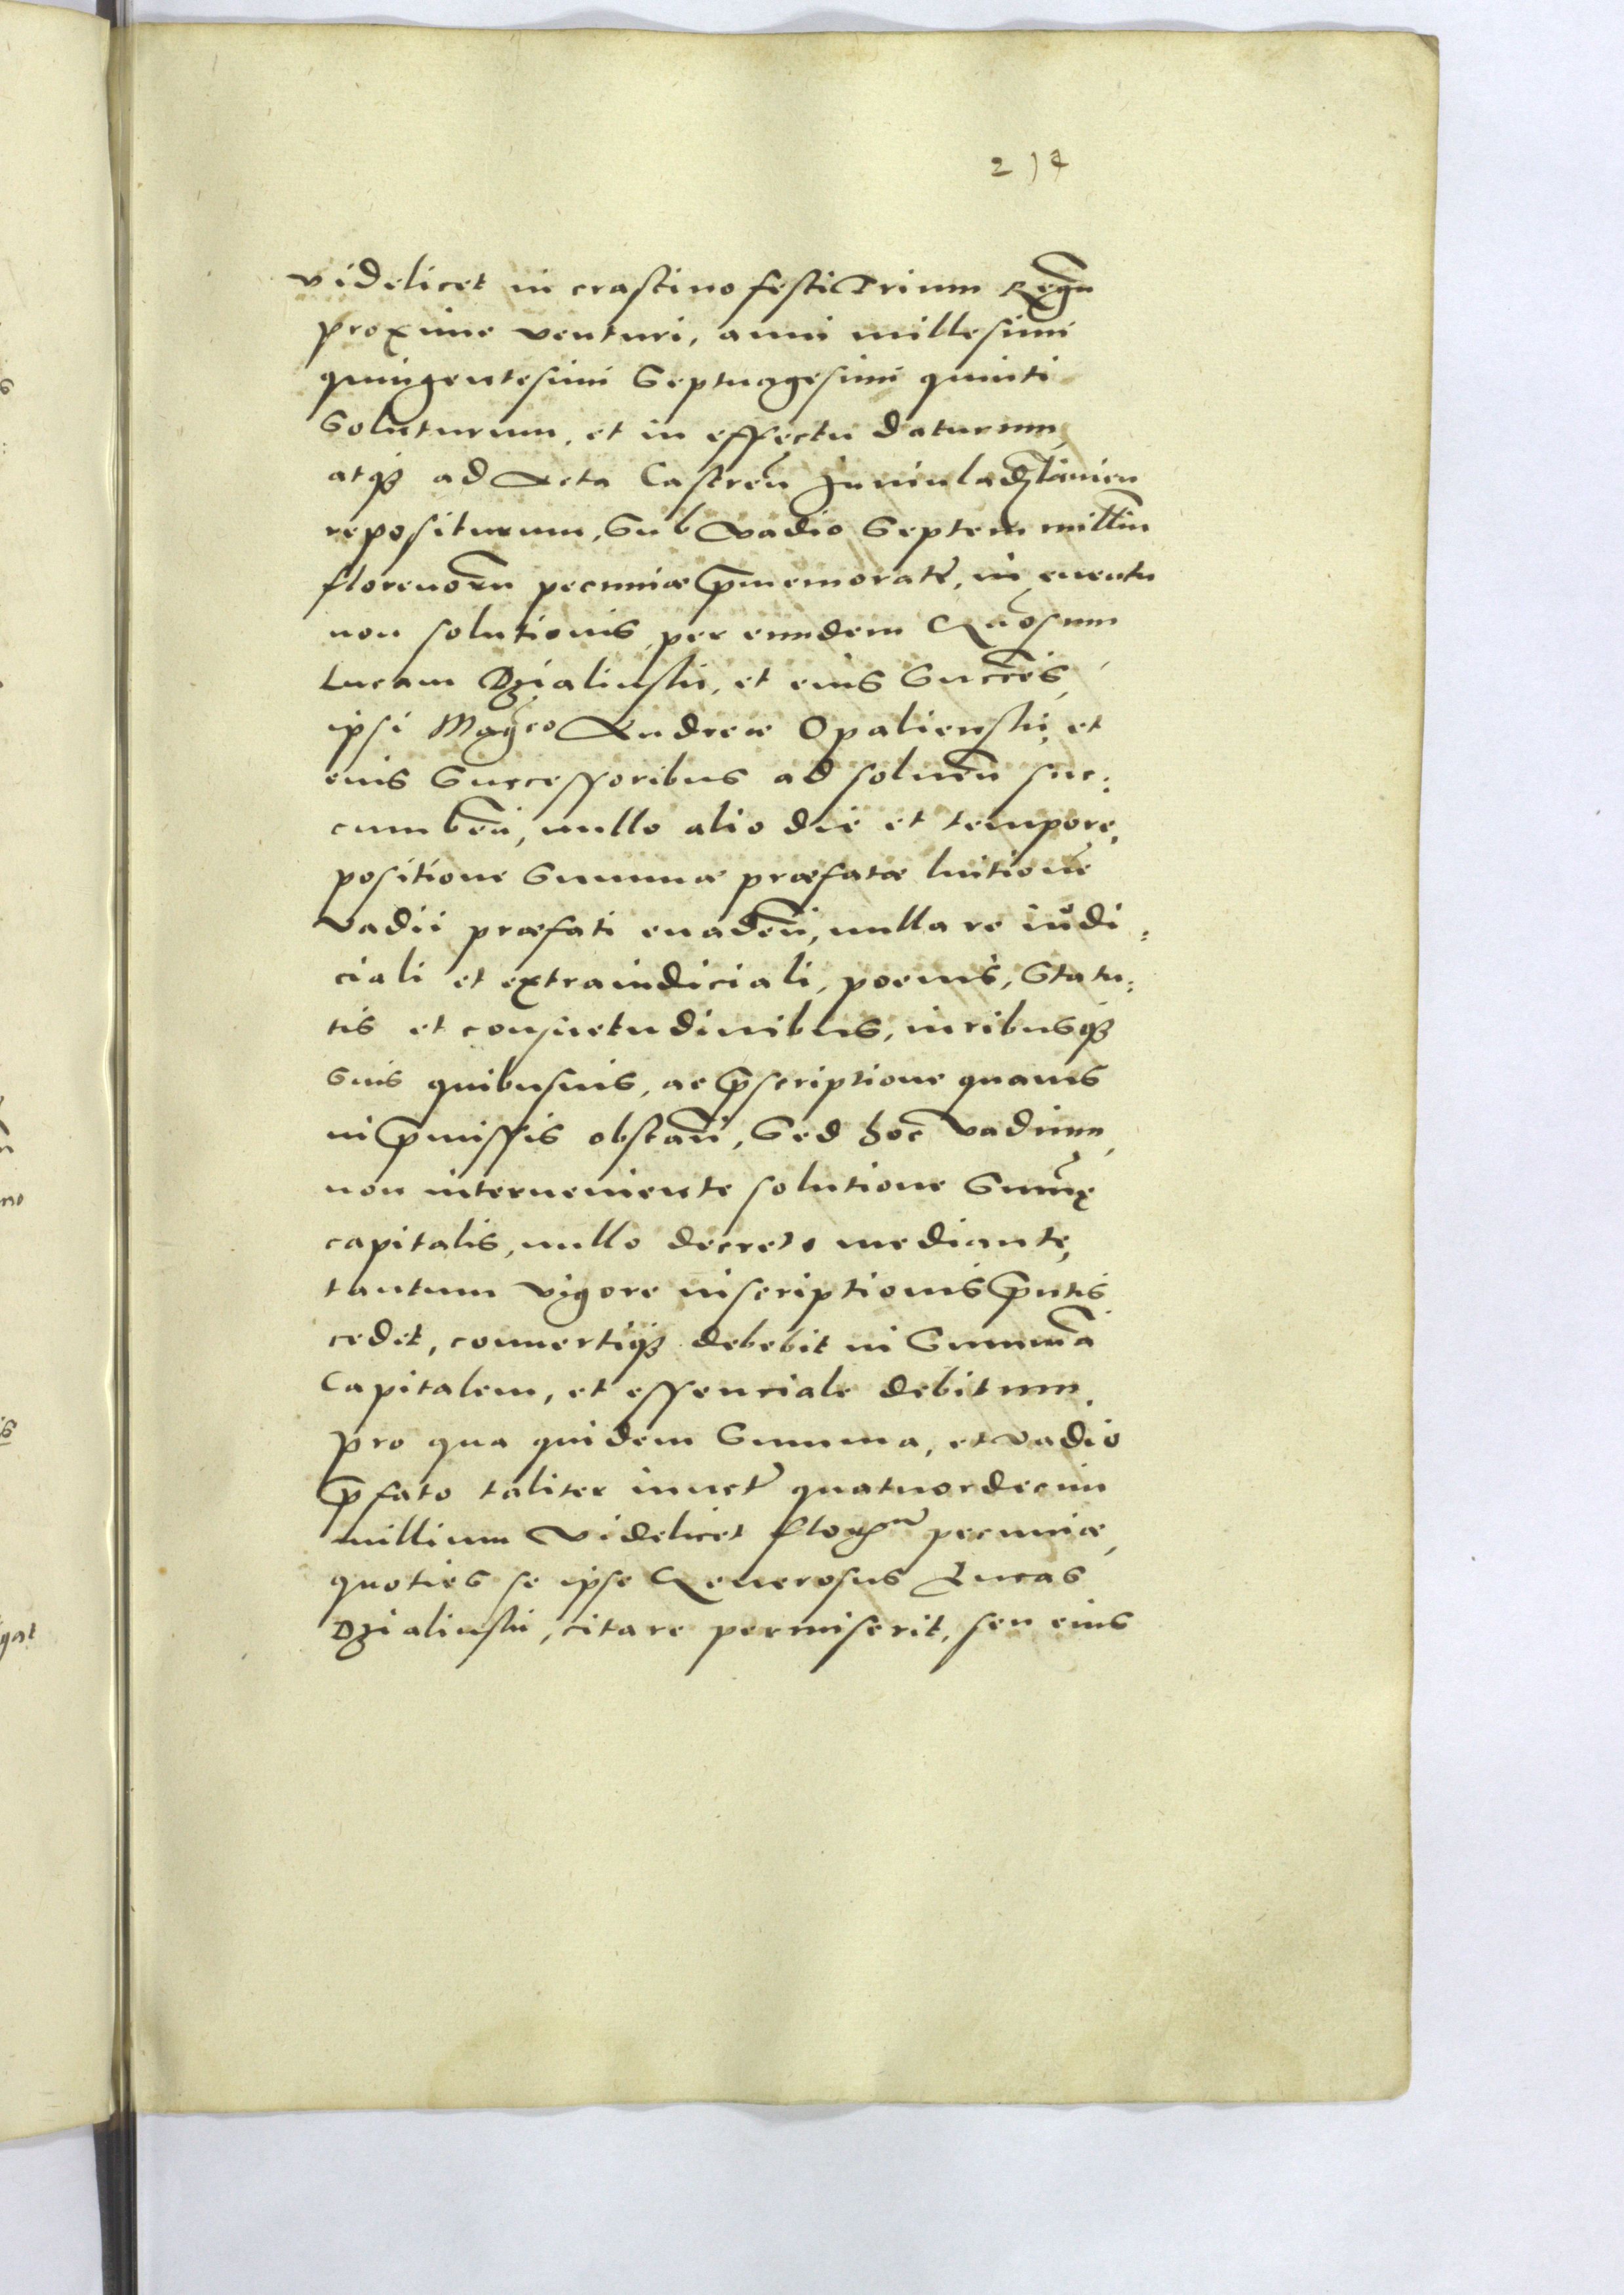 214
videlicet in crastino festi Trium Regū
proxime venturi, anni millesimi
quingentesimi Septuagesimi quinti
Soluturum, et in effectu daturum,
atq3 ad Acta Castreñ
repositurum, Sub vadio Septem millīu
florenorū pecuniæ p̄memoratę, in euentu
non solutionis per eundem Gñosum
Lucam Dzialinski, et eius Succēs,
ipsi Mag̃co Andreæ Opalienski, et
eius Successoribus ad soluēn suc:
cumbēn, nullo alio die et tempore,
positione Summæ præfatæ luitione
vadii præfati euadēn, nulla re iudi:
ciali et extraiudiciali, poenis, Statu:
tis et consuetudinibus, iuribusq3
Suis quibusuis, ac p̄scriptione quauis
in p̄missis obstāñ, Sed hoc vadium,
non interueniente solutione Sum̄ę
capitalis, nullo decreto mediante,
tantum vigore inscriptionis p̄ntis
cedet, conuertiq3 debebit in Summā
Capitalem, et essenciale debitum.
pro qua quidem Summa, et vadio
p̄fato taliter iunctę quatuordecim
millium videlicet pecuniæ,
quoties se ipse Generosus Lucas
Dzialinski, citare permiserit, seu eius